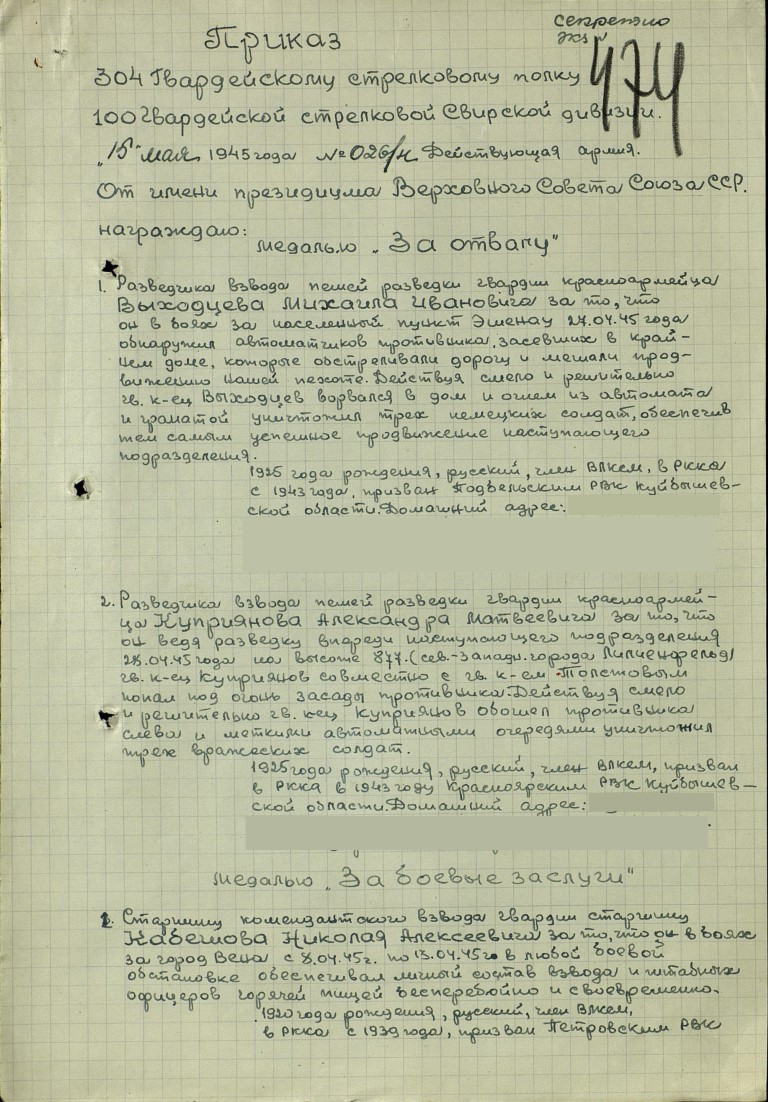 секретно
экз №
474
Приказ
304 Гвардейскому стрелковому полку
100 Гвардейской стрелковой Свирской дивизии.
„15" мая 1945 года № 026/н Действующая армия.
От имени президиума Верховного Совета Союза ССР.
награждаю:
медалью „За отвагу"
1. Разведчика взвода пешей разведки гвардии красноармейца
Выходцева Михаила Ивановича за то, что
он в боях за населенный пункт Эшенау 27.04.45 года
обнаружил автоматчиков противника, засевших в край-
нем доме, которые обстреливали дорогу и мешали прод-
вижению нашей пехоте. Действуя смело и решительно
гв. к-ец Выходцев ворвался в дом и огнем из автомата
и гранатой уничтожил трех немецких солдат, обеспечив
тем самым успешное продвижение наступающего
подразделения.
1925 года рождения, русский, член ВЛКСМ, в РККА
с 1943 года, призван Подбельским РВК Куйбышев-
ской области. Домашний адрес:
2. Разведчика взвода пешей разведки гвардии красноармей-
ца Куприянова Александра Матвеевича за то, что
он ведя разведку впереди наступающего подразделения
28.04.45 года на высоте 877. (сев.-западн. города Лилиенфельд)
гв. к-ец Куприянов совместно с гв. к-ем Толстовым
попал под огонь засады противника. Действуя смело
и решительно гв. к-ец Куприянов обошел противника
слева и меткими автоматными очередями уничтожил
трех вражеских солдат.
1925 года рождения, русский, член ВЛКСМ, призван
в РККА в 1943 году Красноярским РВК Куйбышев-
ской области. Домашний адрес:
медалью „За боевые заслуги"
1. Старшину комендантского взвода гвардии старшину
Кабешова Николая Алексеевича за то, что он в боях
за город Вена с 8.04.45г. по 13.04.45г в любой боевой
обстановке обеспечивал личный состав взвода и штабных
офицеров горячей пищей бесперебойно и своевременно.
1920 года рождения, русский, член ВЛКСМ,
в РККА с 1939 года, призван Петровским РВК